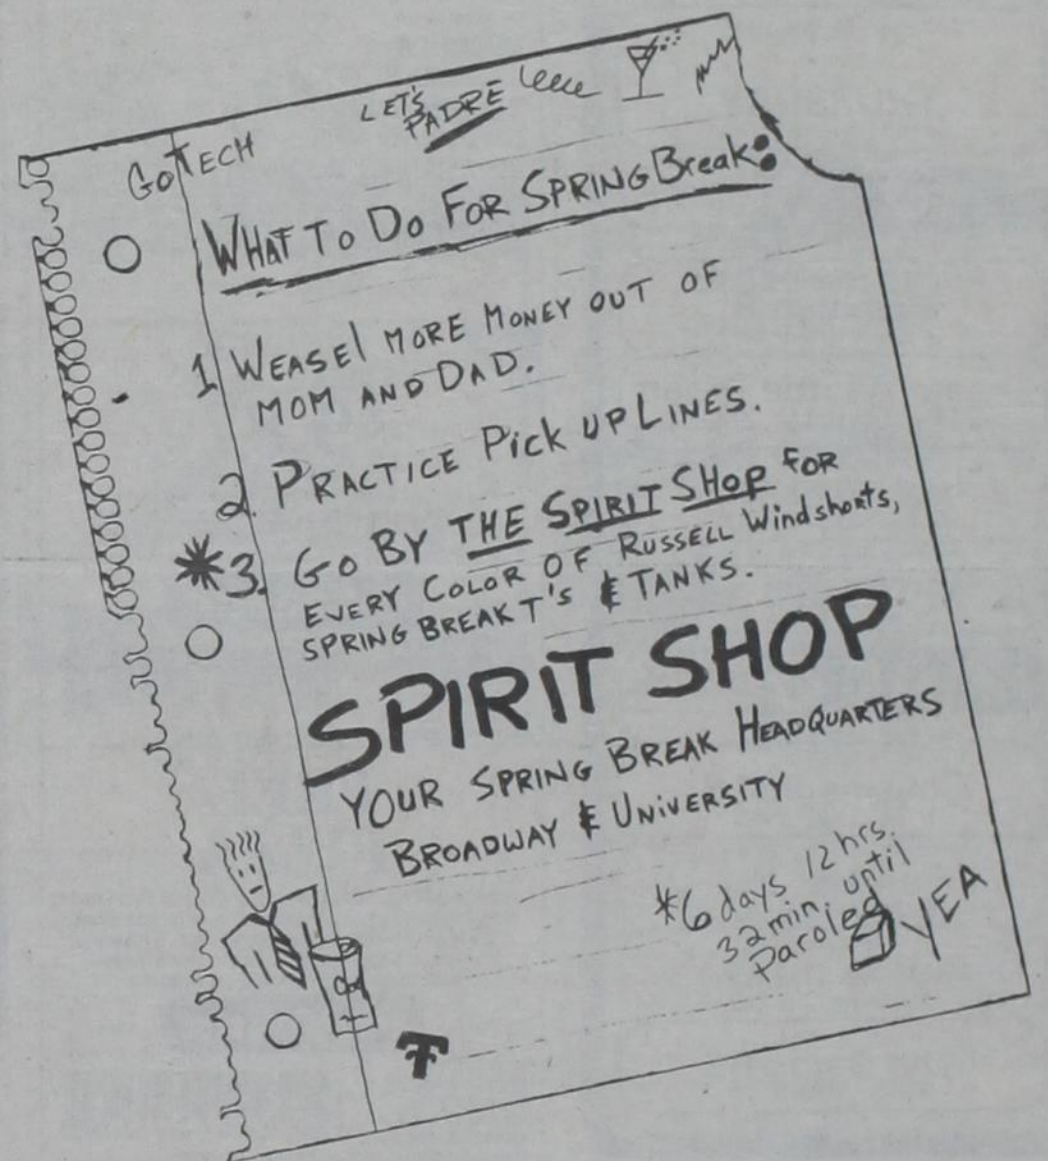 LET'S
PADRE
GO TECH
WHAT TO DO FOR SPRING Break:
1. WEASEl MORE MONEY OUT OF
MOM AND DAD.
2. PRACTICE Pick UP LINES.
*3. GO BY THE SPIRIT SHOP FOR
EVERY COLOR OF RUSSELL Windshorts,
SPRING BREAK T's & TANKS.
SPIRIT SHOP
YOUR SPRING BREAK HEADQUARTERS
BROADWAY & UNIVERSITY
*6 days 12 hrs.
32 min. until
Paroled
YEA